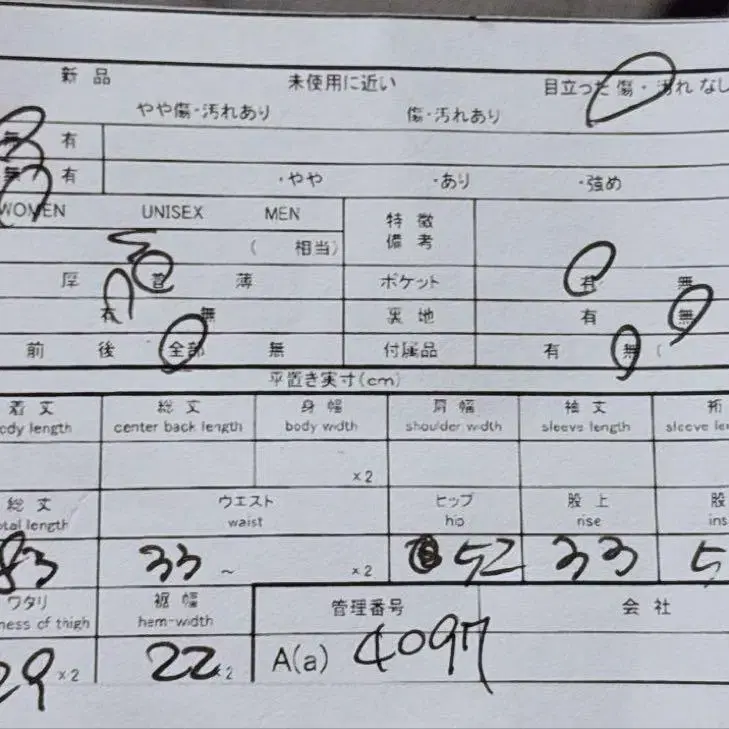 新品 未使用に近い 目立った傷・汚れなし
やや傷・汚れあり 傷・汚れあり
無 有
無 有 ・やや ・あり ・強め
WOMEN UNISEX MEN 特徴
備考
( 相当)
厚 普 薄 ポケット 有 無
有 無 裏地 有 無
前 後 全部 無 付属品 有 無 (
平置き実寸(cm)
着丈 総丈 身幅 肩幅 袖丈 裄
ody length center back length body width shoulder width sleeve length sleeve le
×2
総丈 ウエスト ヒップ 股上 股
otal length waist hip rise ins
83 33 ~ ×2 52 33 5
ワタリ 裾幅 管理番号 会社
ness of thigh hem-width
29 ×2 22 ×2 A(a) 4097